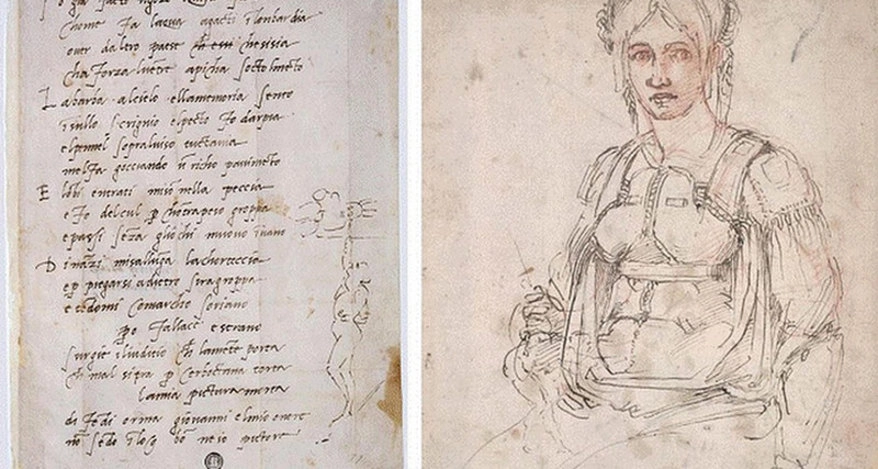 gia facto ngozo
chome fa lacqua agacti i lonbardia
over daltro paese ch essi chesisia
cha forza luētre apicha socto lmēto
La barba alcielo ellamemoria sento
i sullo scrignio elpecto fo darpia
elpennel sopraluiso tuctavia
melfa gocciando ū richo pavimēto
E lōbi entrati miso nella peccia
e fo delcul p chōtrapeso groppa
e passi sēza gliochi muovo ivano
Dināzi misalluga lachorteccia
ep piegarsi adietro siragroppa
e tēdomi comarcho soriano
po fallace e strano
surgie iliuditio ch lamēte porta
ch mal sipra p cerboctana torta
lamia pictura morta
difēdi orma giovanni elmio onore
nō sēdo i log bō ne io pictore